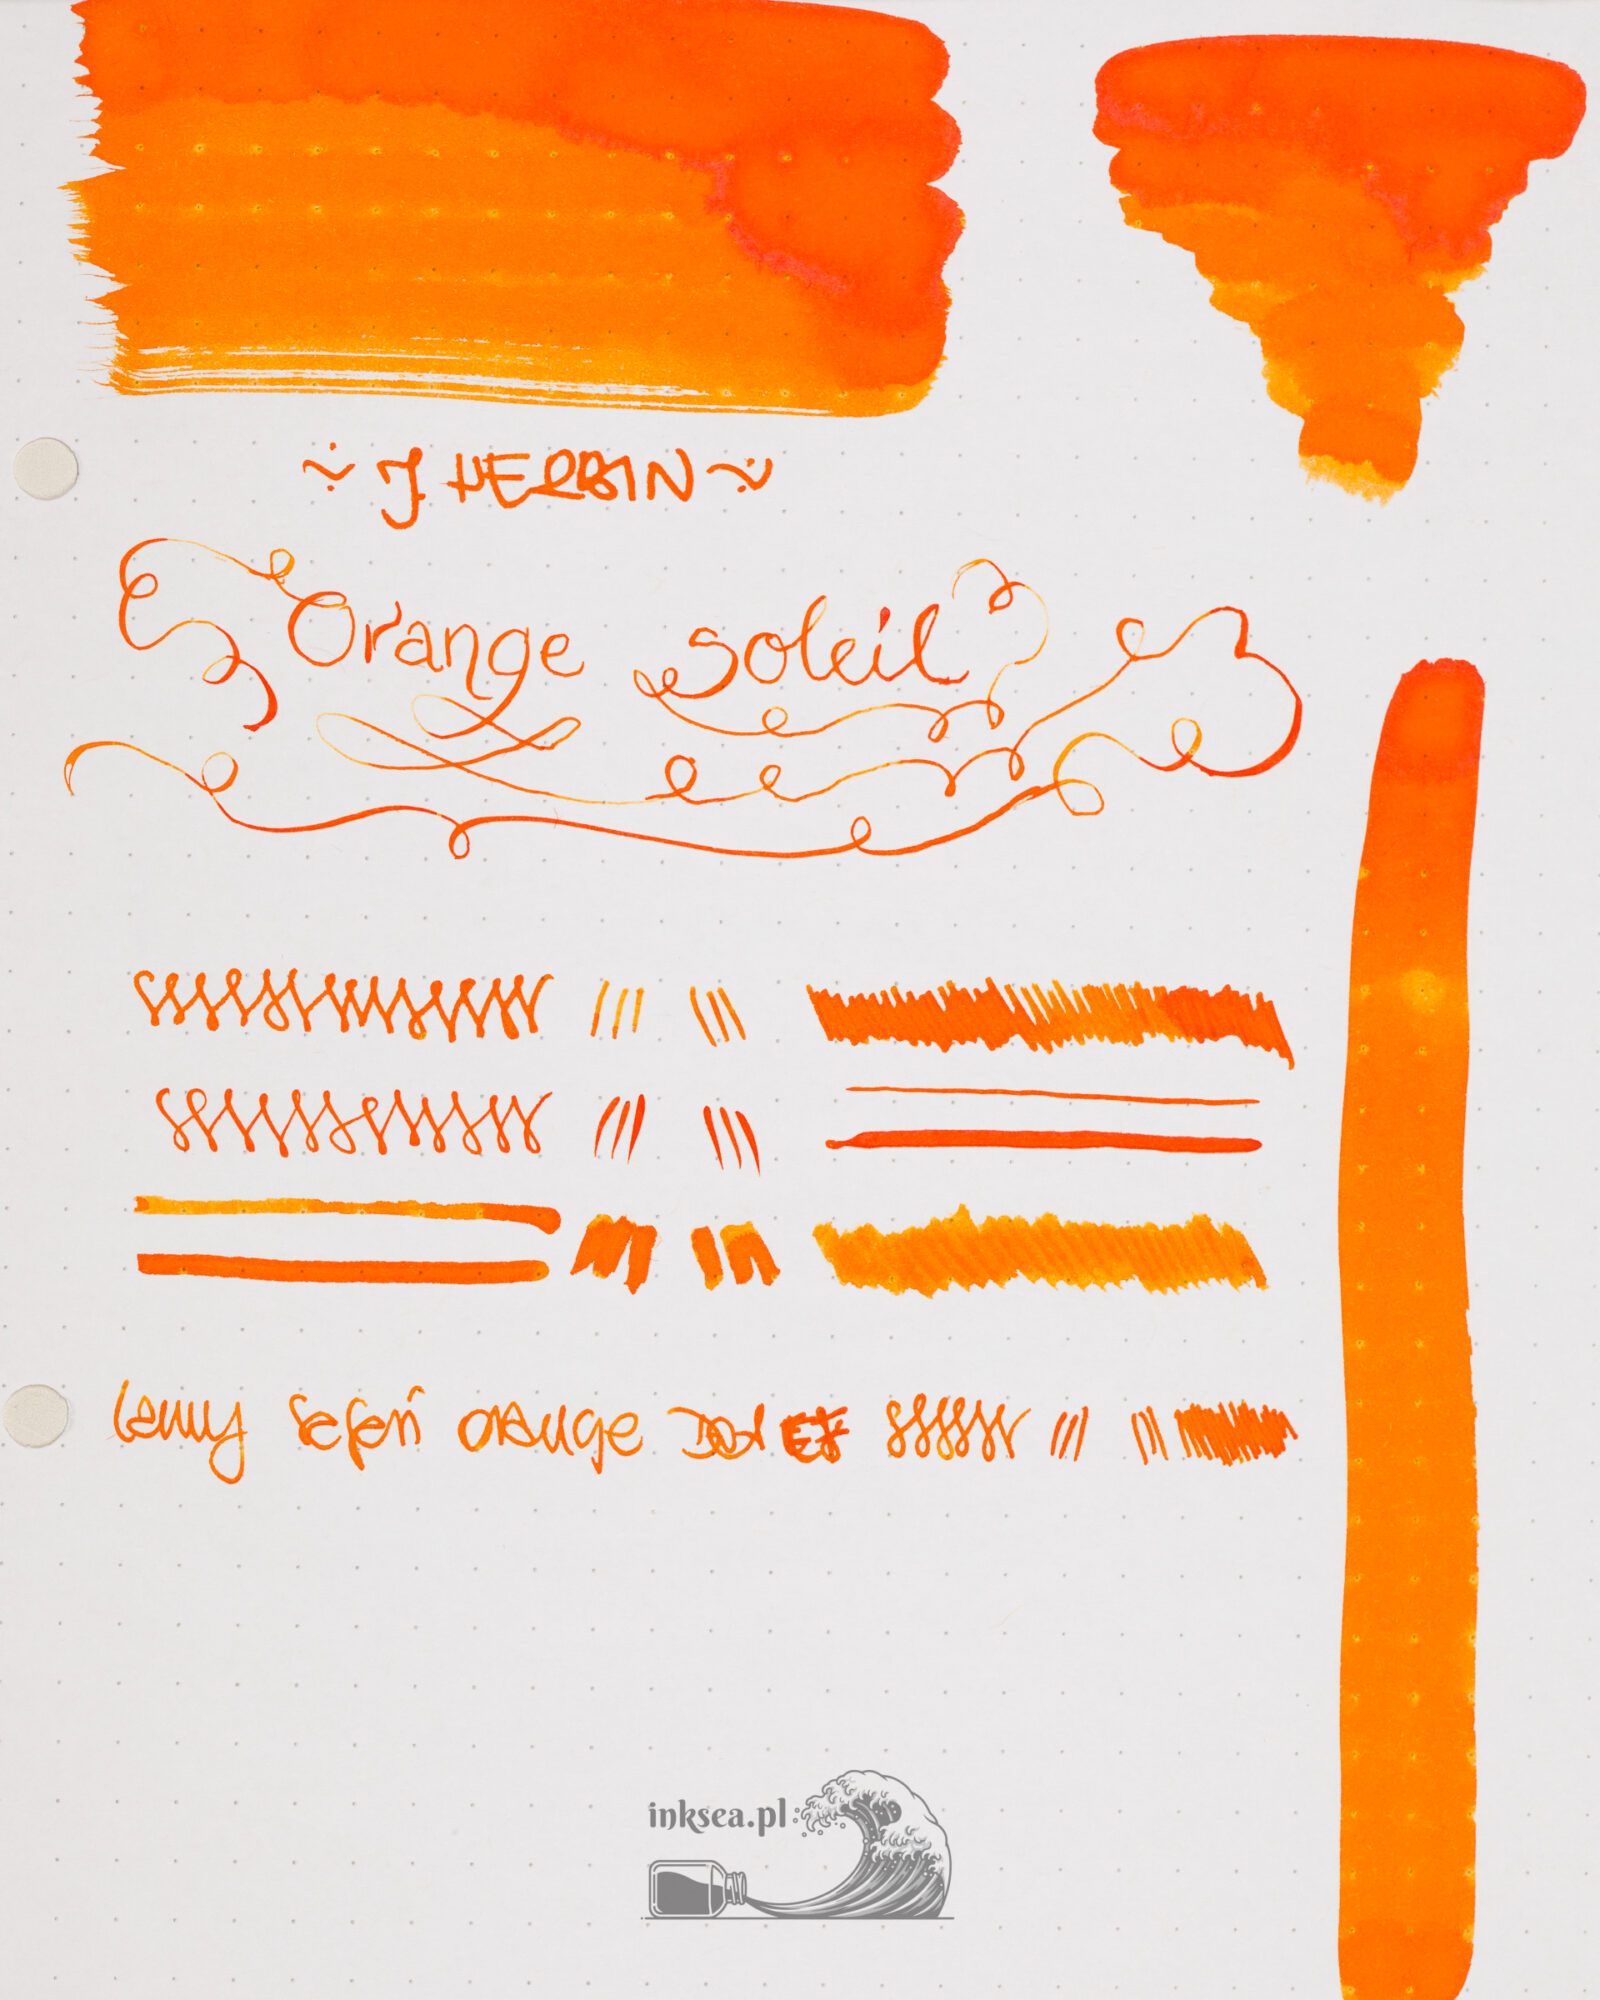 ~ J HERBIN ~
Orange soleil
Lamy Safari orange EF
inksea.pl